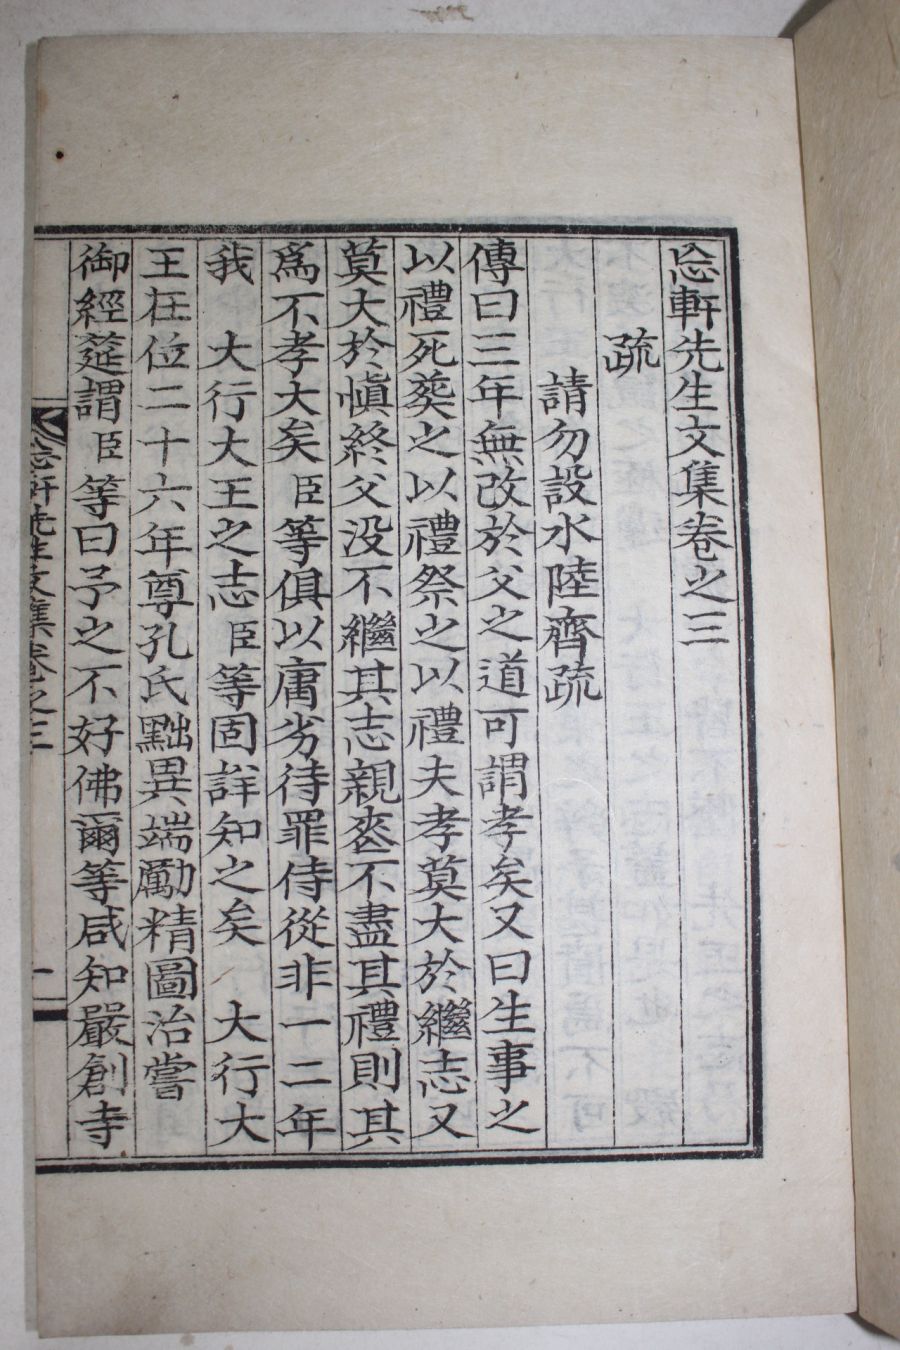 忩軒先生文集卷之三
疏
請勿設水陸齊疏
傳曰三年無改於父之道可謂孝矣又曰生事之
以禮死葬之以禮祭之以禮夫孝莫大於繼志又
莫大於愼終父没不繼其志親喪不盡其禮則其
爲不孝大矣臣等俱以庸劣待罪侍從非一二年
我 大行大王之志臣等固詳知之矣 大行大
王在位二十六年尊孔氏黜異端勵精圖治嘗
御經筵謂臣等曰予之不好佛爾等咸知嚴創寺
忩軒先生文集卷之三 一